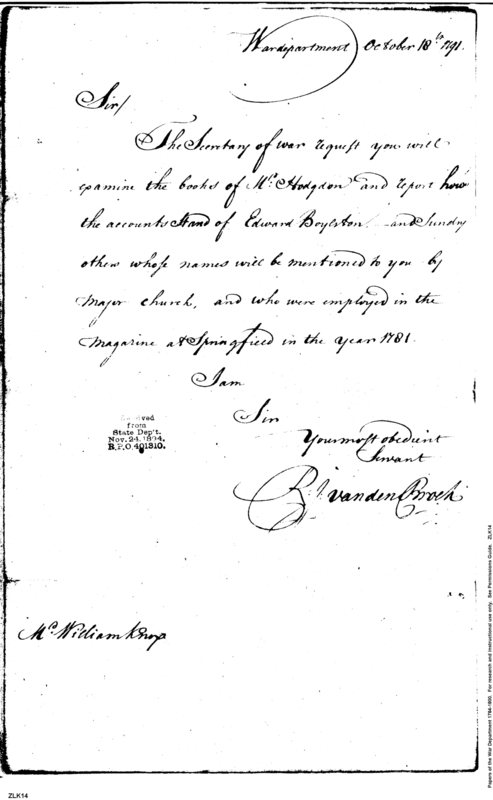 Wardepartment October 18th 1791.
Sir/
The Secretary of war request you will
examine the books of Mr. Hodgdon and report how
the accounts Stand of Edward Boylston, and Sundry
others whose names will be mentioned to you by
Major Church, and who were employed in the
Magazine at Springfield in the Year 1781.
I am
Sir
Your most obedient
Servant
R. J. vanden Broek
Received
from
State Dep't.
Nov. 24, 1894,
R.P.O. 401310.
Mr. William Knox
ZLK14
Papers of the War Department 1784-1800. For research and instructional use only. See Permissions Guide. ZLK14